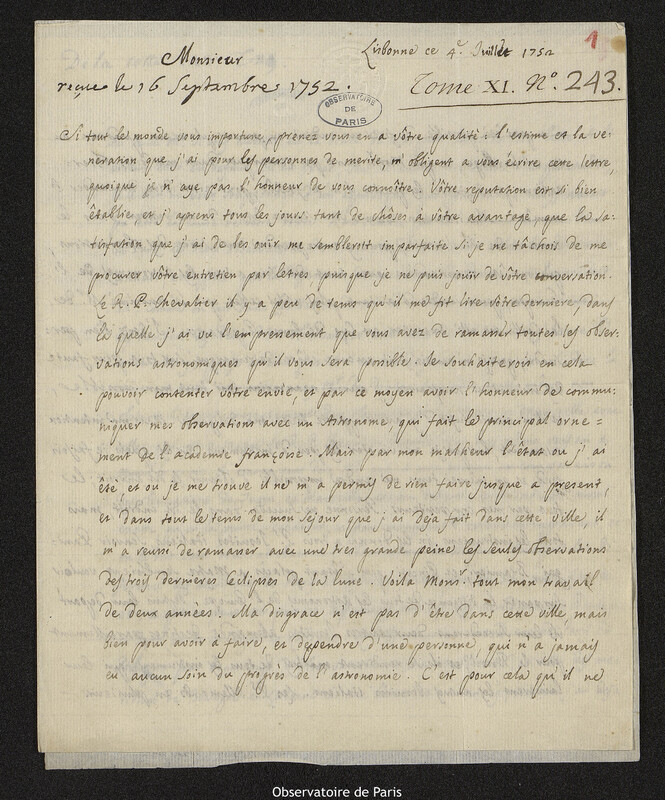 1
Lisbonne ce 4.e Juillet 1752
Monsieur
reçue le 16 Septembre 1752.
Tome XI. N.o 243.
OBSERVATOIRE
DE
PARIS
Si tout le monde vous importune, prenez vous en a vôtre qualité: l'estime et la ve-
neration que j'ai pour les personnes de merite, m'obligent a vous écrire cette lettre,
quoique je n'aye pas l'honneur de vous connoître. Vôtre reputation est si bien
établie, et j'aprens tous les jours tant de chôses à vôtre avantage que la sa-
tisfation que j'ai de les ouïr me sembleroit imparfaite si je ne tâchois de me
procurer vôtre entretien par letres puisque je ne puis jouïr de vôtre conversation.
Le R. P. Chevalier il y a peu de tems qu'il me fit lire vôtre derniere, dans
la quelle j'ai vu l'empressement que vous avez de ramasser toutes les obser-
vations astronomiques qu'il vous sera possible. Je souhaiterois en cela
pouvoir contenter vôtre envie, et par ce moyen avoir l'honneur de commu-
niquer mes observations avec un Astronome, qui fait le principal orne=
ment de l'academie françoise. Mais par mon malheur l'état ou j'ai
été, et ou je me trouve il ne m'a permis de rien faire jusque a present,
et dans tout le tems de mon sejour que j'ai deja fait dans cette ville, il
m'a reussi de ramasser avec une tres grande peine les seules observations
des trois dernieres Eclipses de la lune. Voila Mons.r tout mon travail
de deux années. Ma disgrace n'est pas d'être dans cette ville, mais
bien pour avoir à faire, et dependre d'une personne, qui n'a jamais
eu aucun soin du progrès de l'astronomie. C'est pour cela qu'il ne
Observatoire de Paris